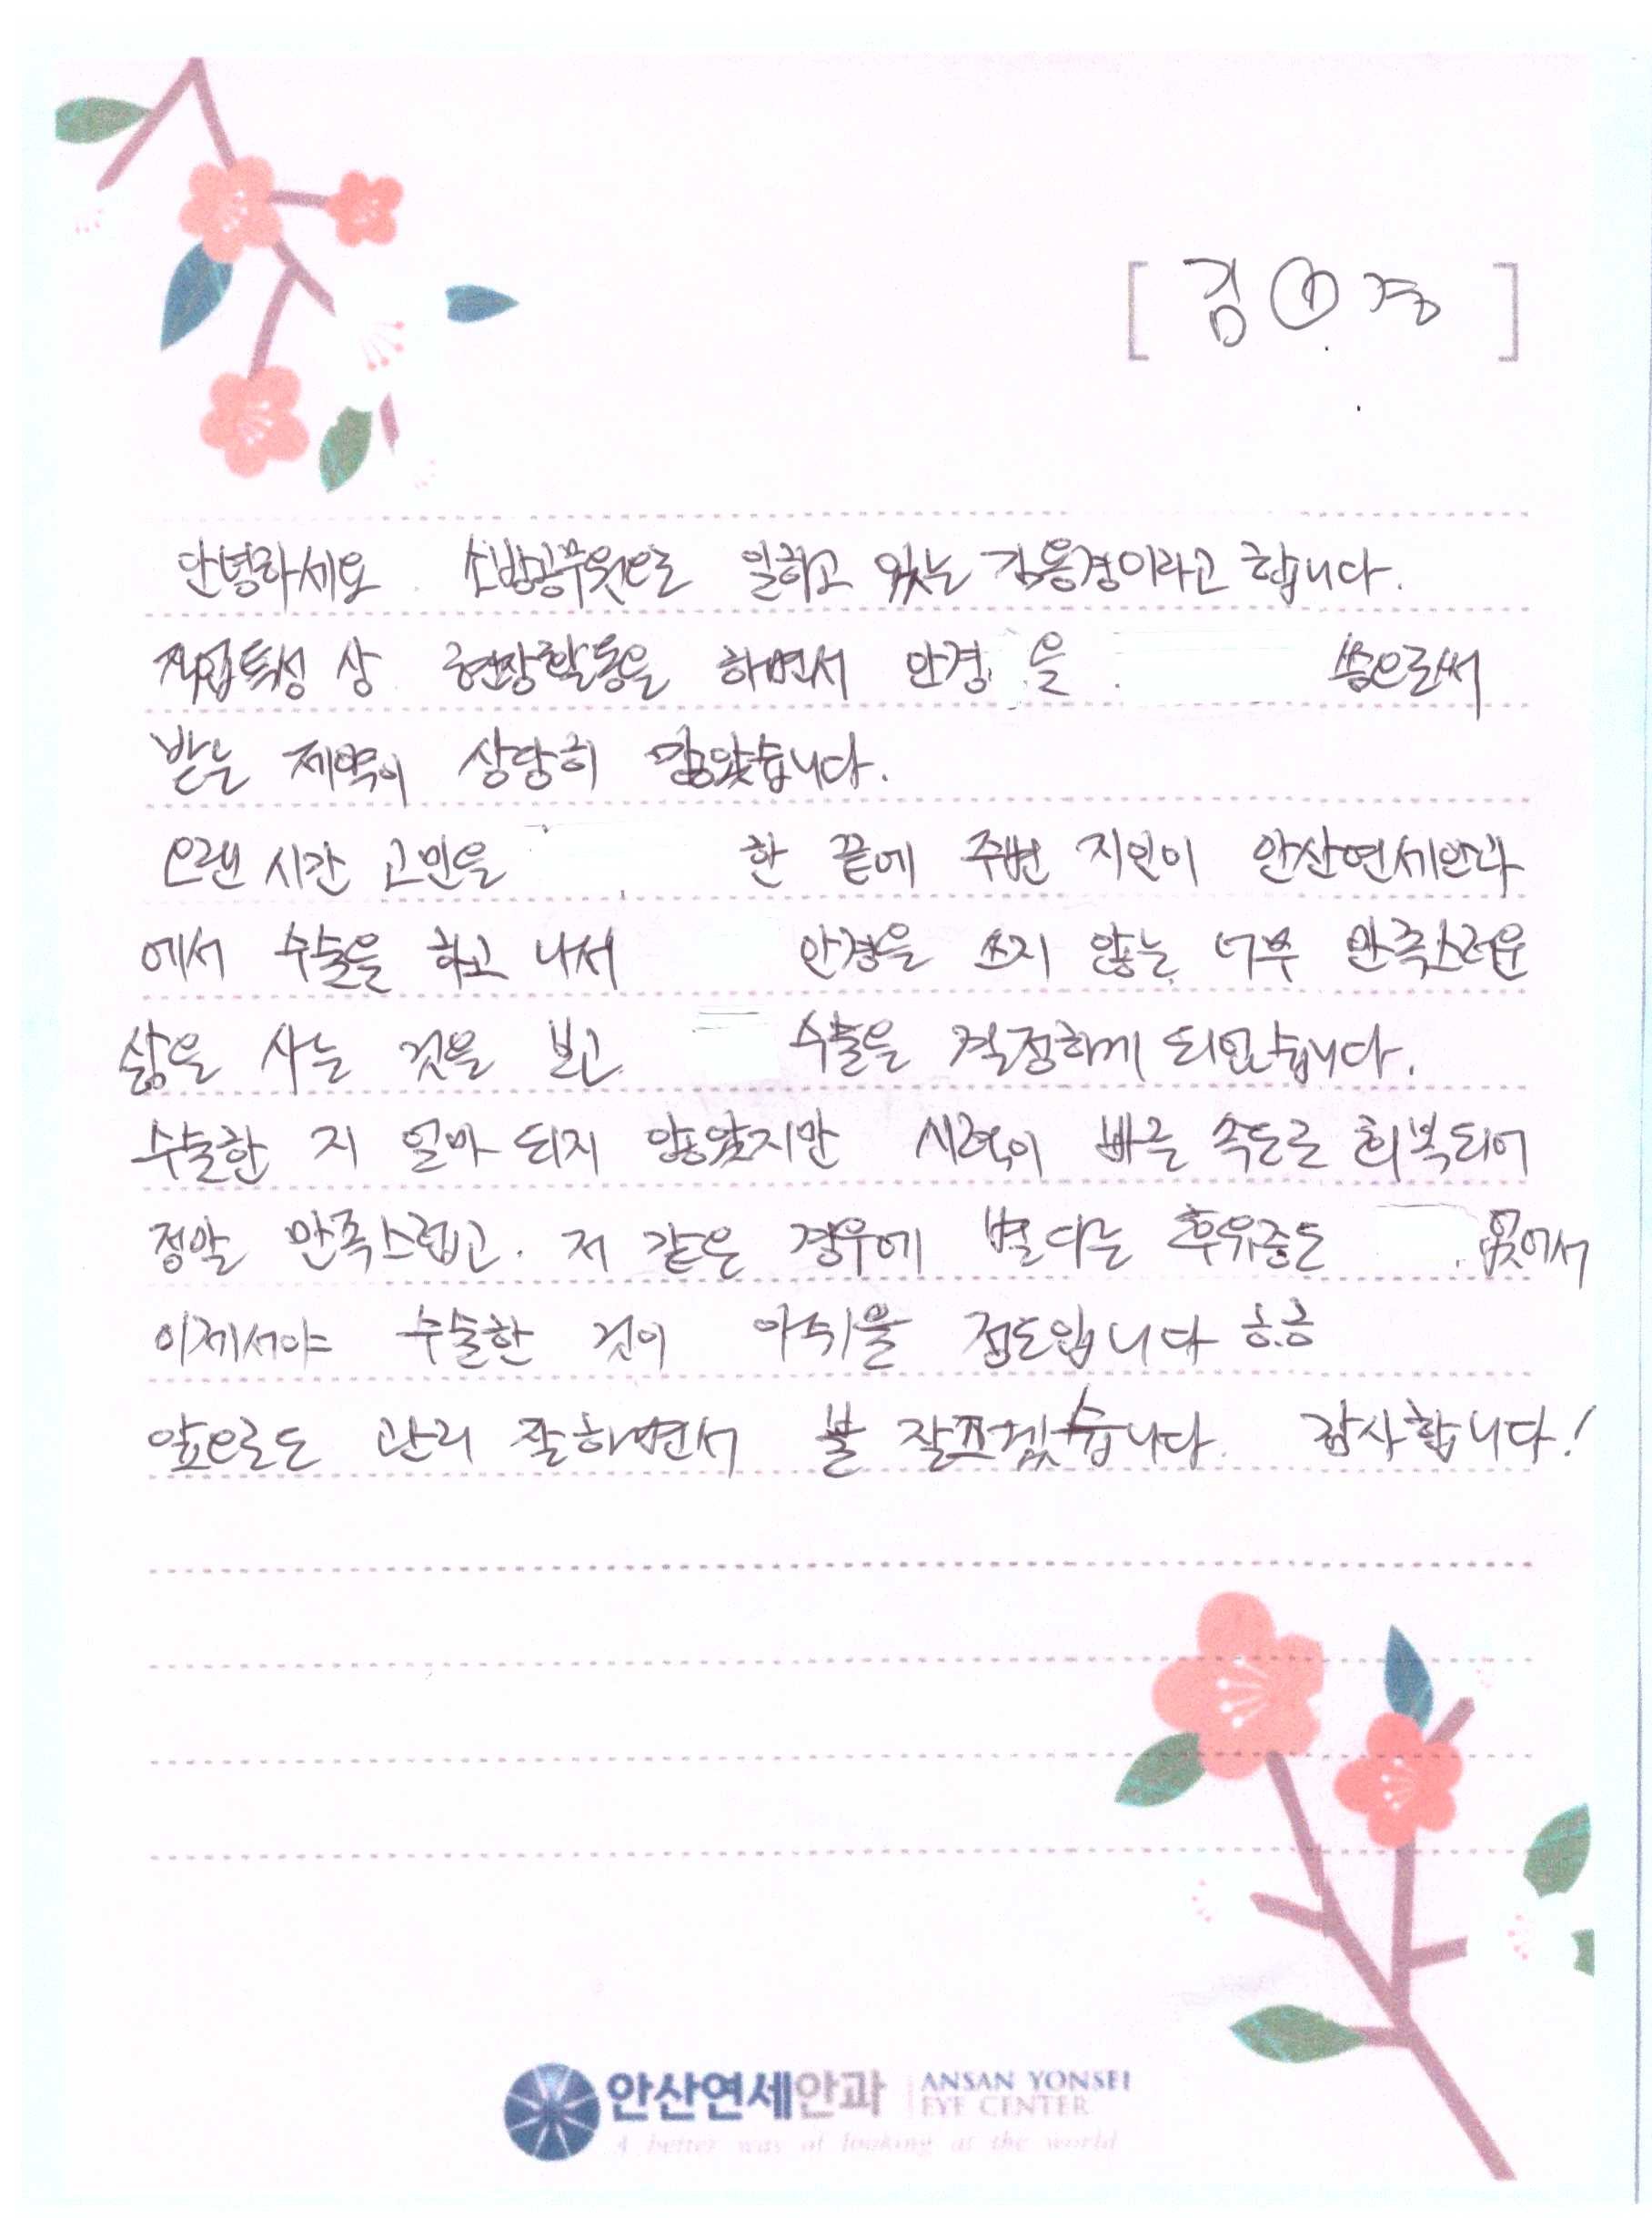 [ 김 ① 경 ]
안녕하세요. 소방공무원으로 일하고 있는 김동경이라고 합니다.
직업특성 상 현장활동을 하면서 안경을 씀으로써
받는 제약이 상당히 많았습니다.
오랜 시간 고민을 한 끝에 주변 지인이 안산연세안과
에서 수술을 하고 나서 안경을 쓰지 않는 너무 만족스러운
삶을 사는 것을 보고 수술을 결정하게 되었습니다.
수술한 지 얼마 되지 않았지만 시력이 빠른 속도로 회복되어
정말 만족스럽고. 저 같은 경우에 별다른 후유증도 없어서
이제서야 수술한 것이 아쉬울 정도입니다 ㅎㅎ
앞으로도 관리 잘하면서 불 잘끄겠습니다. 감사합니다!
안산연세안과 ANSAN YONSEI
EYE CENTER
A better way of looking at the world